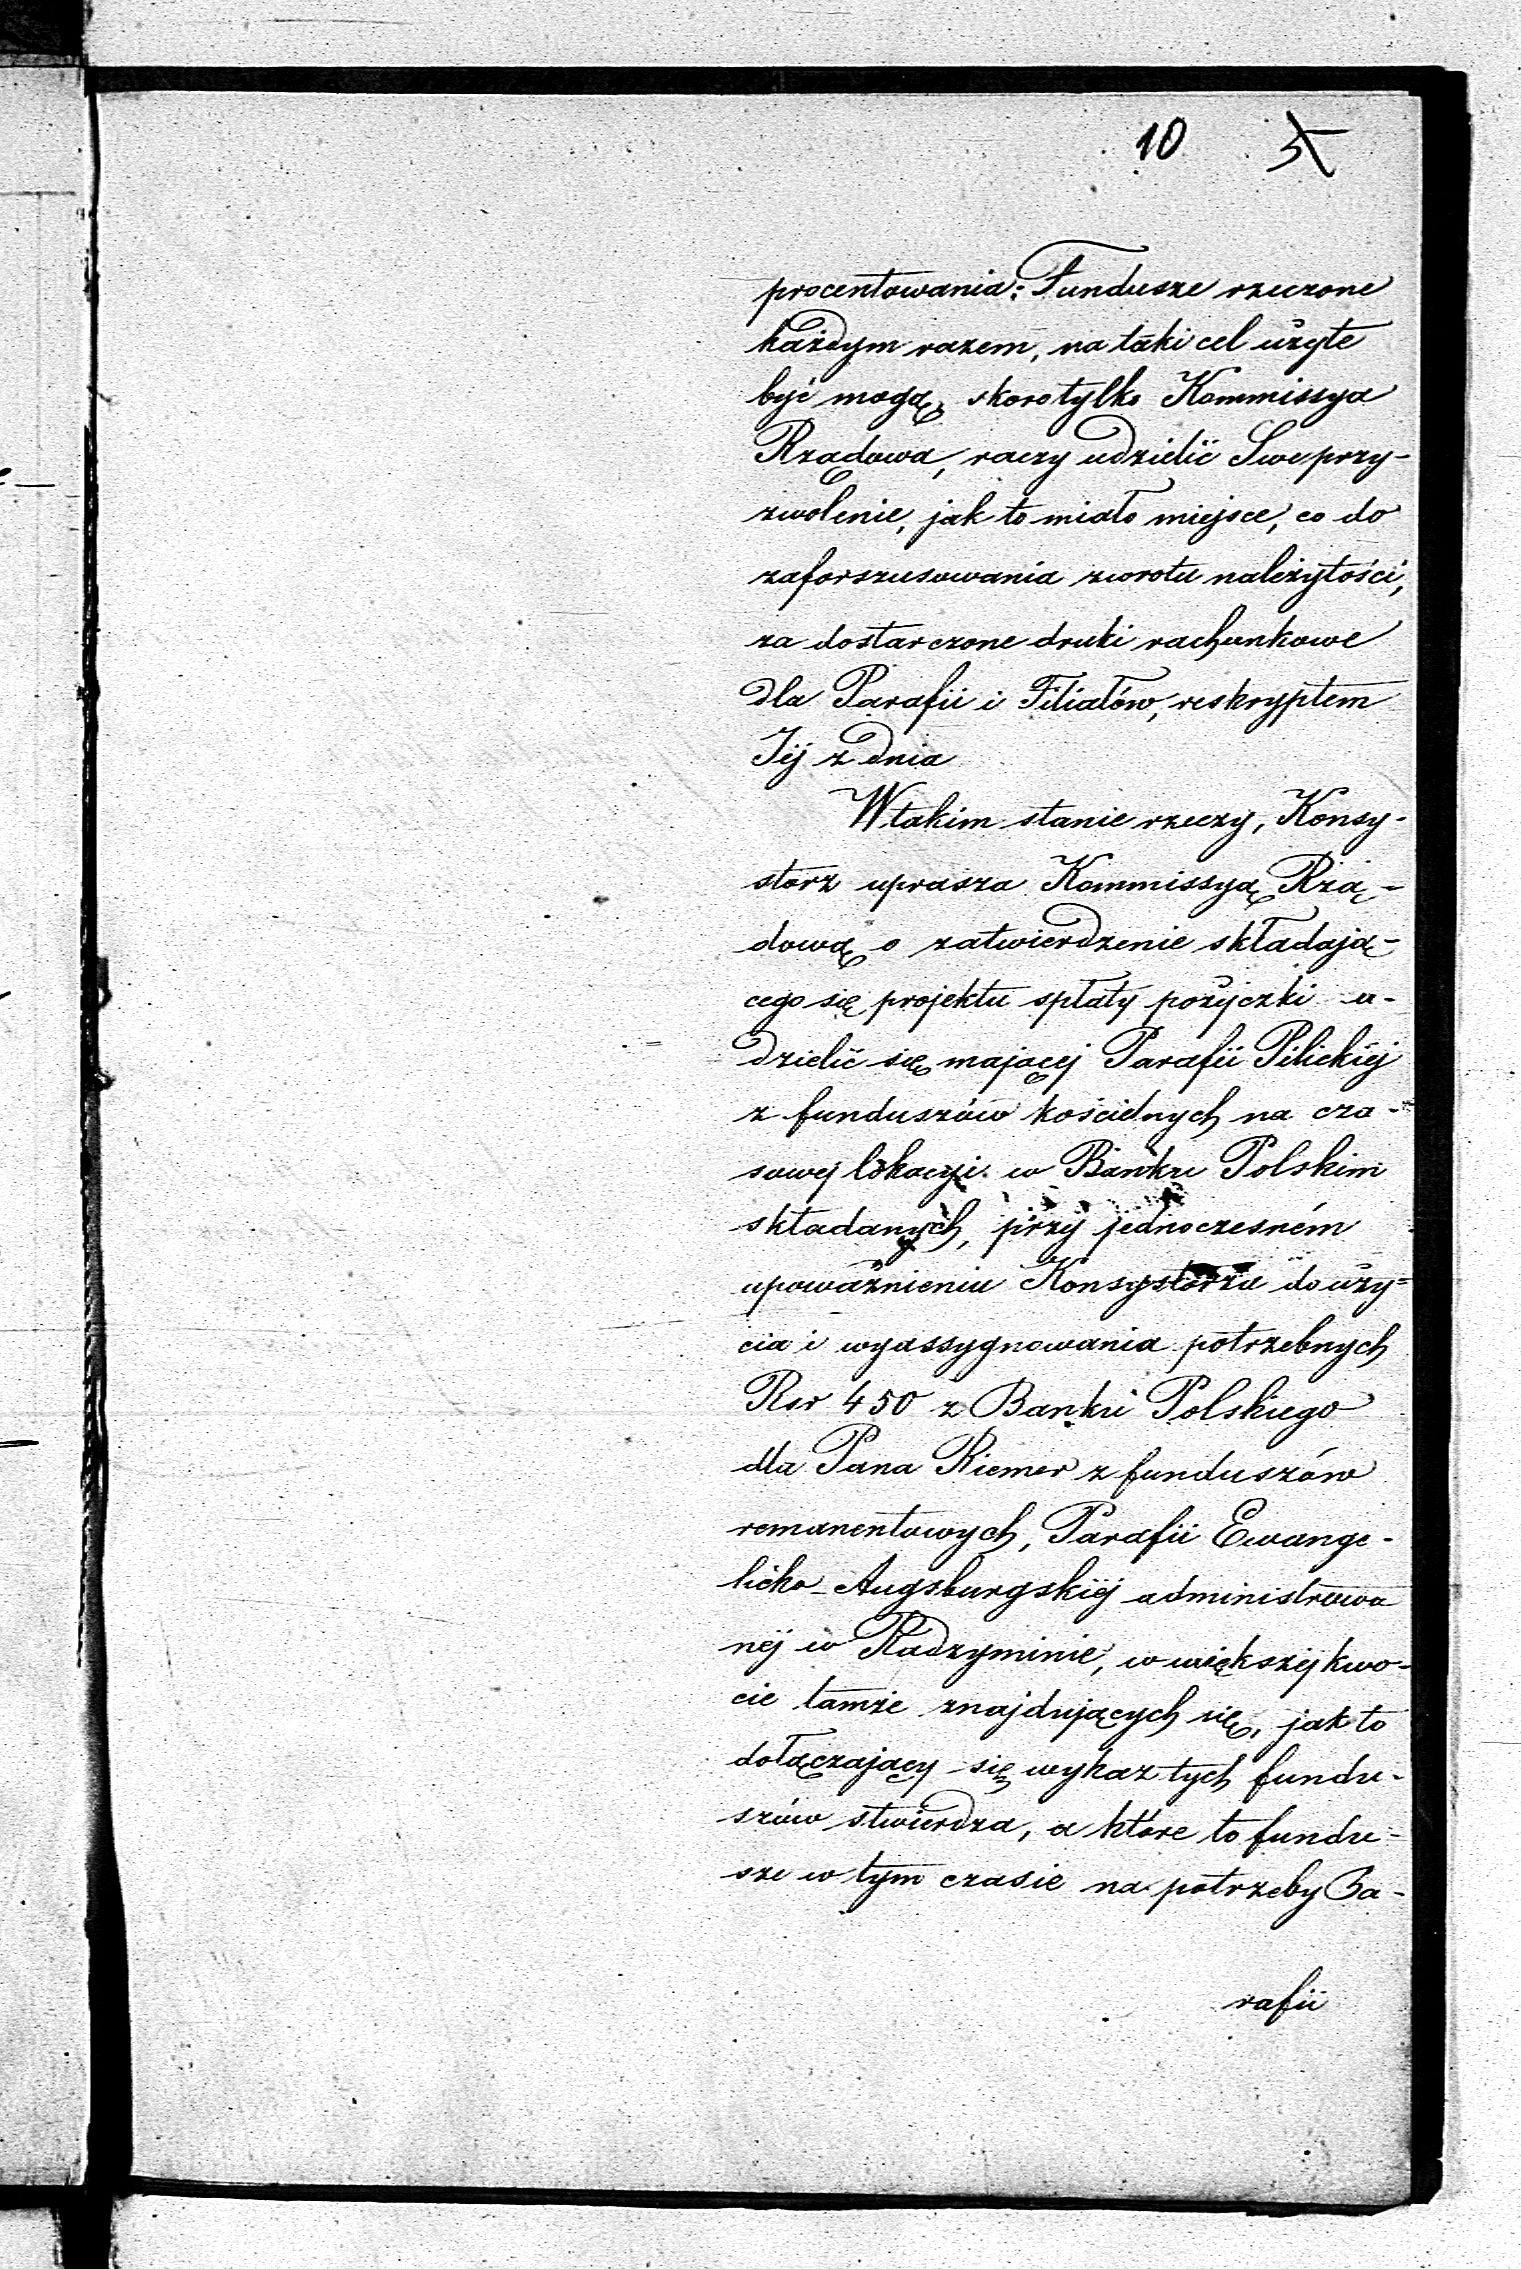 10 5
procentowania: Fundusze rzeczone
każdym razem, na taki cel użyte
być mogą, skoro tylko Kommissya
Rządowa, raczy udzielić Swe przy-
zwolenie, jak to miało miejsce, co do
zaforszusowania zwrotu należytości,
za dostarczone druki rachunkowe
dla Parafii i Filiałów, reskryptem
Jéj z dnia
W takim stanie rzeczy, Konsy-
storz uprasza Kommissyą Rzą-
dową o zatwierdzenie składają-
cego się projektu spłaty pożyczki u-
dzielić się mającej Parafii Pilickiéj
z funduszów kościelnych na cza-
sowej lokacyi w Banku Polskim
składanych, przy jednoczesném
upoważnieniu Konsystorza do uży-
cia i wyassygnowania potrzebnych
Rsr 450 z Banku Polskiego
dla Pana Riemer z funduszów
remanentowych, Parafii Ewange-
licko-Augsburgskiéj administrowa
néj w Radzyminie, w większéj kwo-
cie tamże znajdujących się, jak to
dołączający się wykaz tych fundu-
szów stwierdza, a które to fundu-
sze w tym czasie na potrzeby Pa-
rafii